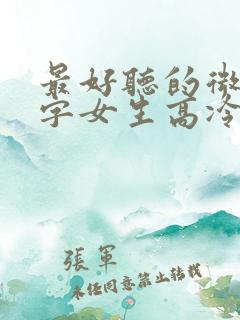 最好聽的微
字女生高冷
張軍
未經同意禁止轉載